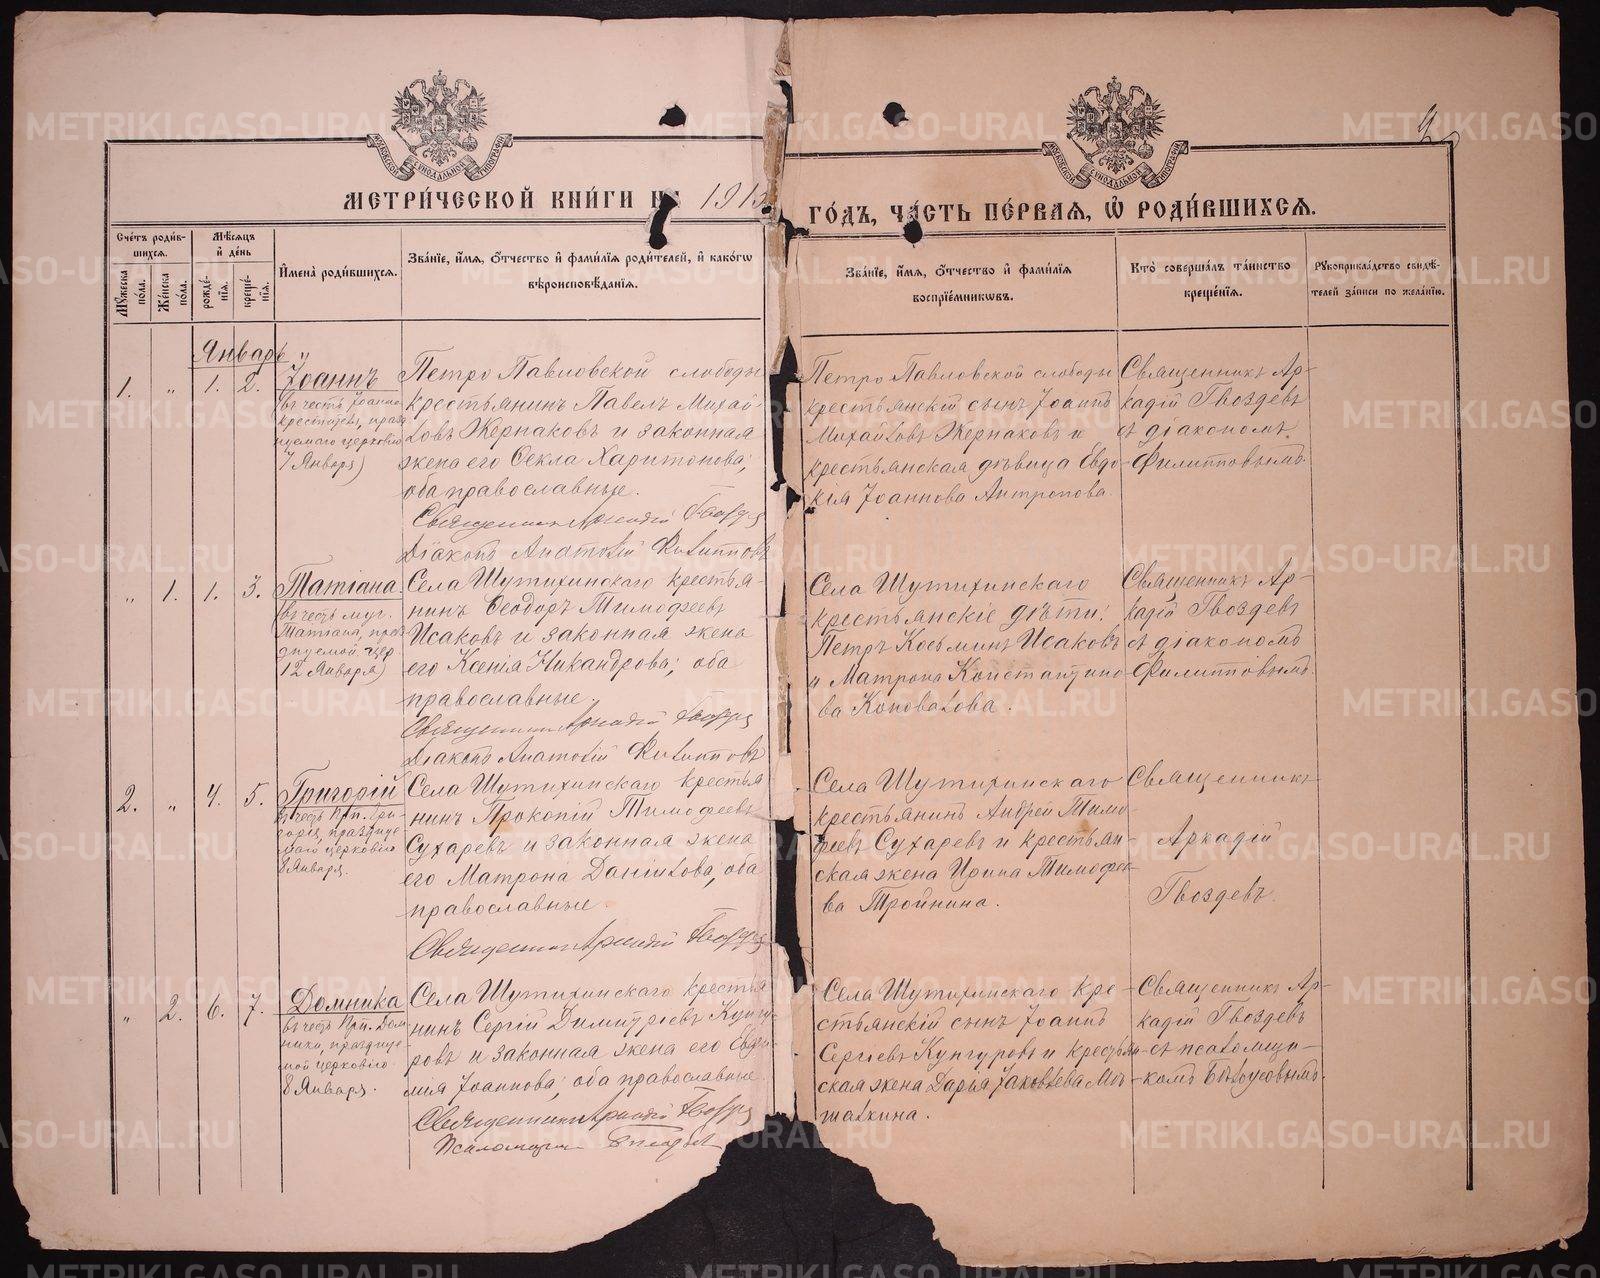 МЕТРИ́ЧЕСКОЙ КНИ́ГИ НА 1915
ГО́ДЪ, ЧА́СТЬ ПЕ́РВАЯ, Ѡ҆ РОДИ́ВШИХСЯ.
2
МОСКОВСКОЙ СѴНОДАЛЬНОЙ ТИПОГРАФІИ
МОСКОВСКОЙ СѴНОДАЛЬНОЙ ТИПОГРАФІИ
Сче́тъ роди́вшихся.
Мꙋ́жеска по́ла.
Же́нска по́ла.
Мѣ́сяцъ и҆ де́нь
рожде́нїя.
креще́нїя.
И҆мена̀ роди́вшихся.
Зва́нїе, и҆́мя, ѻ҆́тчество и҆ фами́лїя роди́телей, и҆ како́гѡ
вѣроисповѣ́данїя.
Зва́нїе, и҆́мя, ѻ҆́тчество и҆ фами́лїя
воспрїе́мникѡвъ.
Кто̀ соверша́лъ та́инство
креще́нїя.
Рꙋкоприкла́дство свидѣ́-
телей за́писи по жела́нїю.
Январь
1. „ 1. 2.
Іоаннъ
(въ честь Іоанна
крестителя, празд
нуемаго церковію
7 Января)
Петро Павловской слободы
крестьянинъ Павелъ Михай-
ловъ Жернаковъ и законная
жена его Ѳекла Харитонова;
оба православные.
Священникъ Аркадій Гвоздевъ
Діаконъ Анатолій Филипповъ
Петро Павловской слободы
крестьянскій сынъ Іоаннъ
Михайловъ Жернаковъ и
крестьянская дѣвица Евдо-
кія Іоаннова Антропова.
Священникъ Ар-
кадій Гвоздевъ
съ діакономъ
Филипповымъ.
„ 1. 1. 3.
Татіана.
(въ честь муч.
Татіаны, праз
днуемой цер.
12 Января)
Села Шутихинскаго крестья-
нинъ Ѳеодоръ Тимофеевъ
Исаковъ и законная жена
его Ксенія Никандрова; оба
православные.
Священникъ Аркадій Гвоздевъ
Діаконъ Анатолій Филипповъ
Села Шутихинскаго
крестьянскіе дѣти:
Петръ Косьминъ Исаковъ
и Матрона Константино-
ва Коновалова.
Священникъ Ар-
кадій Гвоздевъ
съ діакономъ
Филипповымъ.
2. „ 4. 5.
Григорій
въ честь Прп. Гри-
горія, празднуе
маго церковію
8 Января.
Села Шутихинскаго крестья
нинъ Прокопій Тимофеевъ
Сухаревъ и законная жена
его Матрона Даніилова; оба
православные.
Священникъ Аркадій Гвоздевъ
Села Шутихинскаго
крестьянинъ Андрей Тимо-
феевъ Сухаревъ и крестьян-
ская жена Ирина Тимофее-
ва Тройнина.
Священникъ
Аркадій
Гвоздевъ.
„ 2. 6. 7.
Домника
въ честь Прп. Дом
ники, празднуе-
мой церковію
8 Января.
Села Шутихинскаго крестья
нинъ Сергій Димитріевъ Кунгу-
ровъ и законная жена его Евфи-
мія Іоаннова; оба православные
Священникъ Аркадій Гвоздевъ
Псаломщикъ
Села Шутихинскаго кре-
стьянскій сынъ Іоаннъ
Сергіевъ Кунгуровъ и крестьян-
ская жена Дарья Іаковлева Мо-
шалкина.
Священникъ Ар-
кадій Гвоздевъ
съ псаломщи-
комъ Бѣлоусовымъ.
METRIKI.GASO-URAL.RU